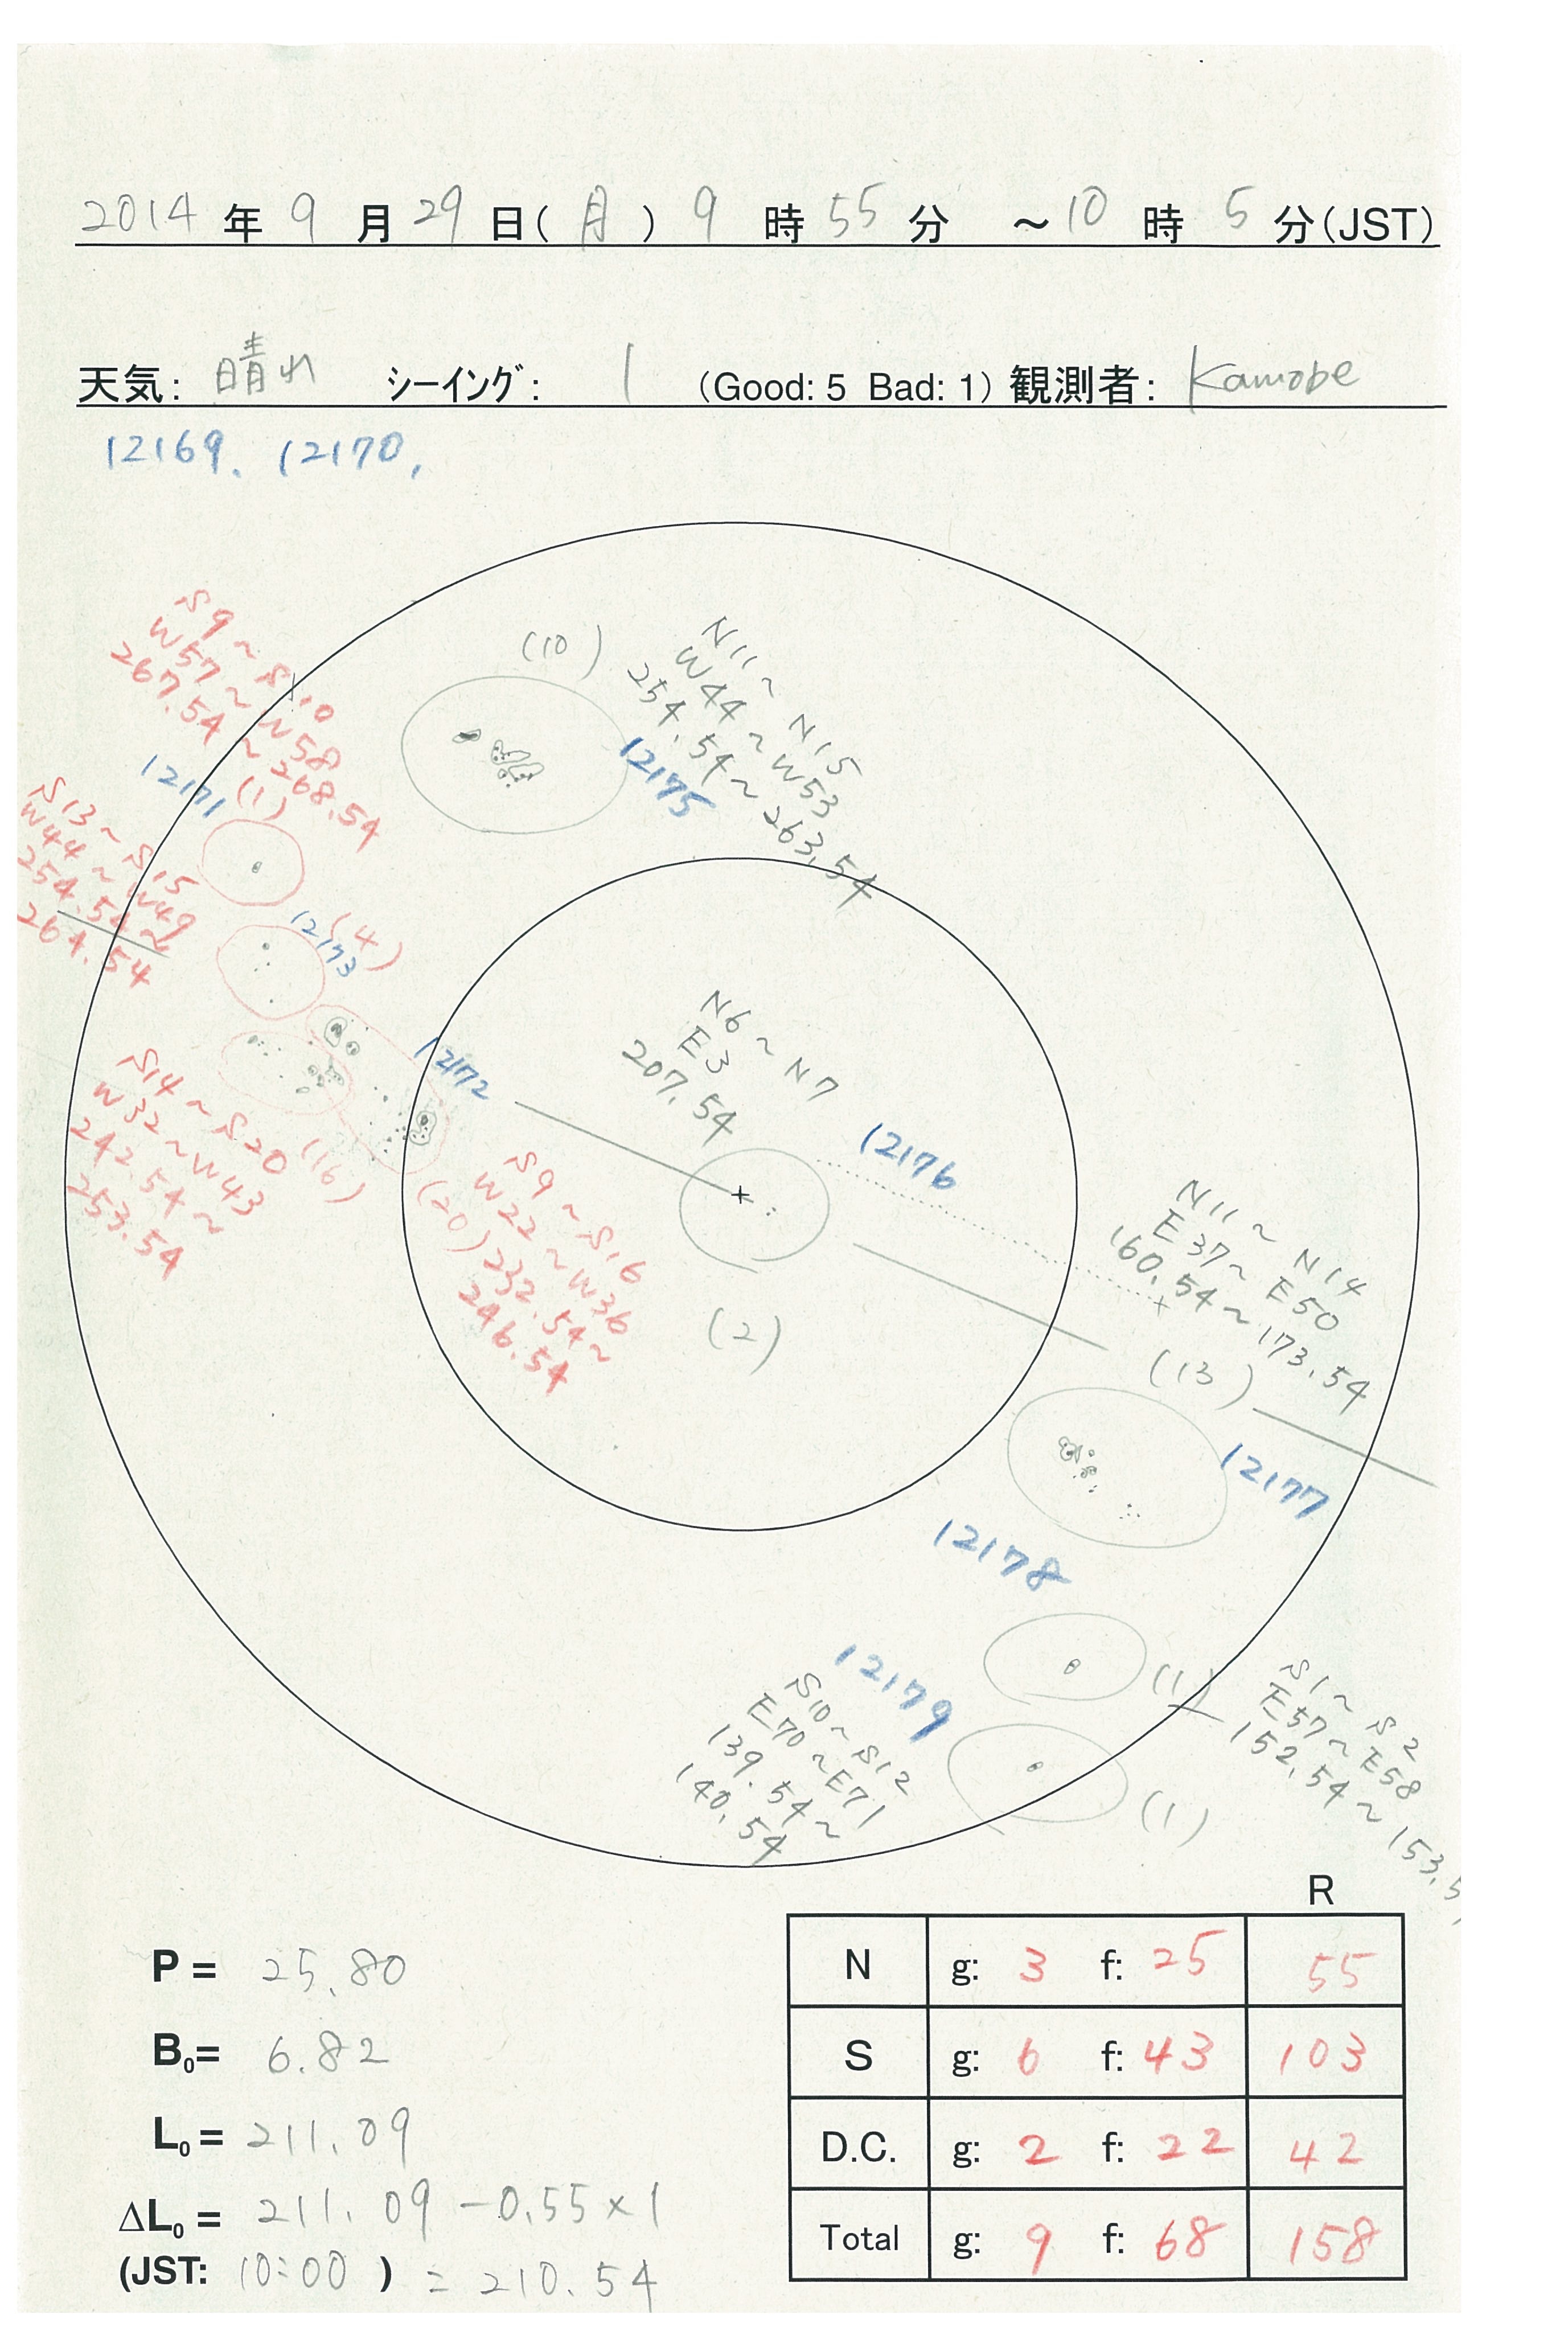 2014 年 9 月 29 日( 月 ) 9 時 55 分 ～10 時 5 分(JST)
天気: 晴れ シーイング: 1 (Good: 5 Bad: 1) 観測者: Kamobe
12169. 12170,
S9～S10
W57～W58
267.54～268.54
12171
(1)
(10)
N11～N15
W44～W53
254.54～263.54
12175
S13～S15
W44～W49
254.54～
264.54
12173
(4)
12172
S14～S20
W32～W43
242.54～
253.54
(16)
(20)
S9～S16
W22～W36
232.54～
246.54
N6～N7
E3
207.54
12176
(2)
N11～N14
E37～E50
160.54～173.54
(13)
12177
12178
(1)
S1～S2
E57～E58
152.54～153.5
12179
S10～S12
E70～E71
139.54～
140.54
(1)
R
P = 25.80
B₀= 6.82
L₀ = 211.09
ΔL₀ = 211.09 -0.55×1
(JST: 10:00 ) = 210.54
N g: 3 f: 25 55
S g: 6 f: 43 103
D.C. g: 2 f: 22 42
Total g: 9 f: 68 158